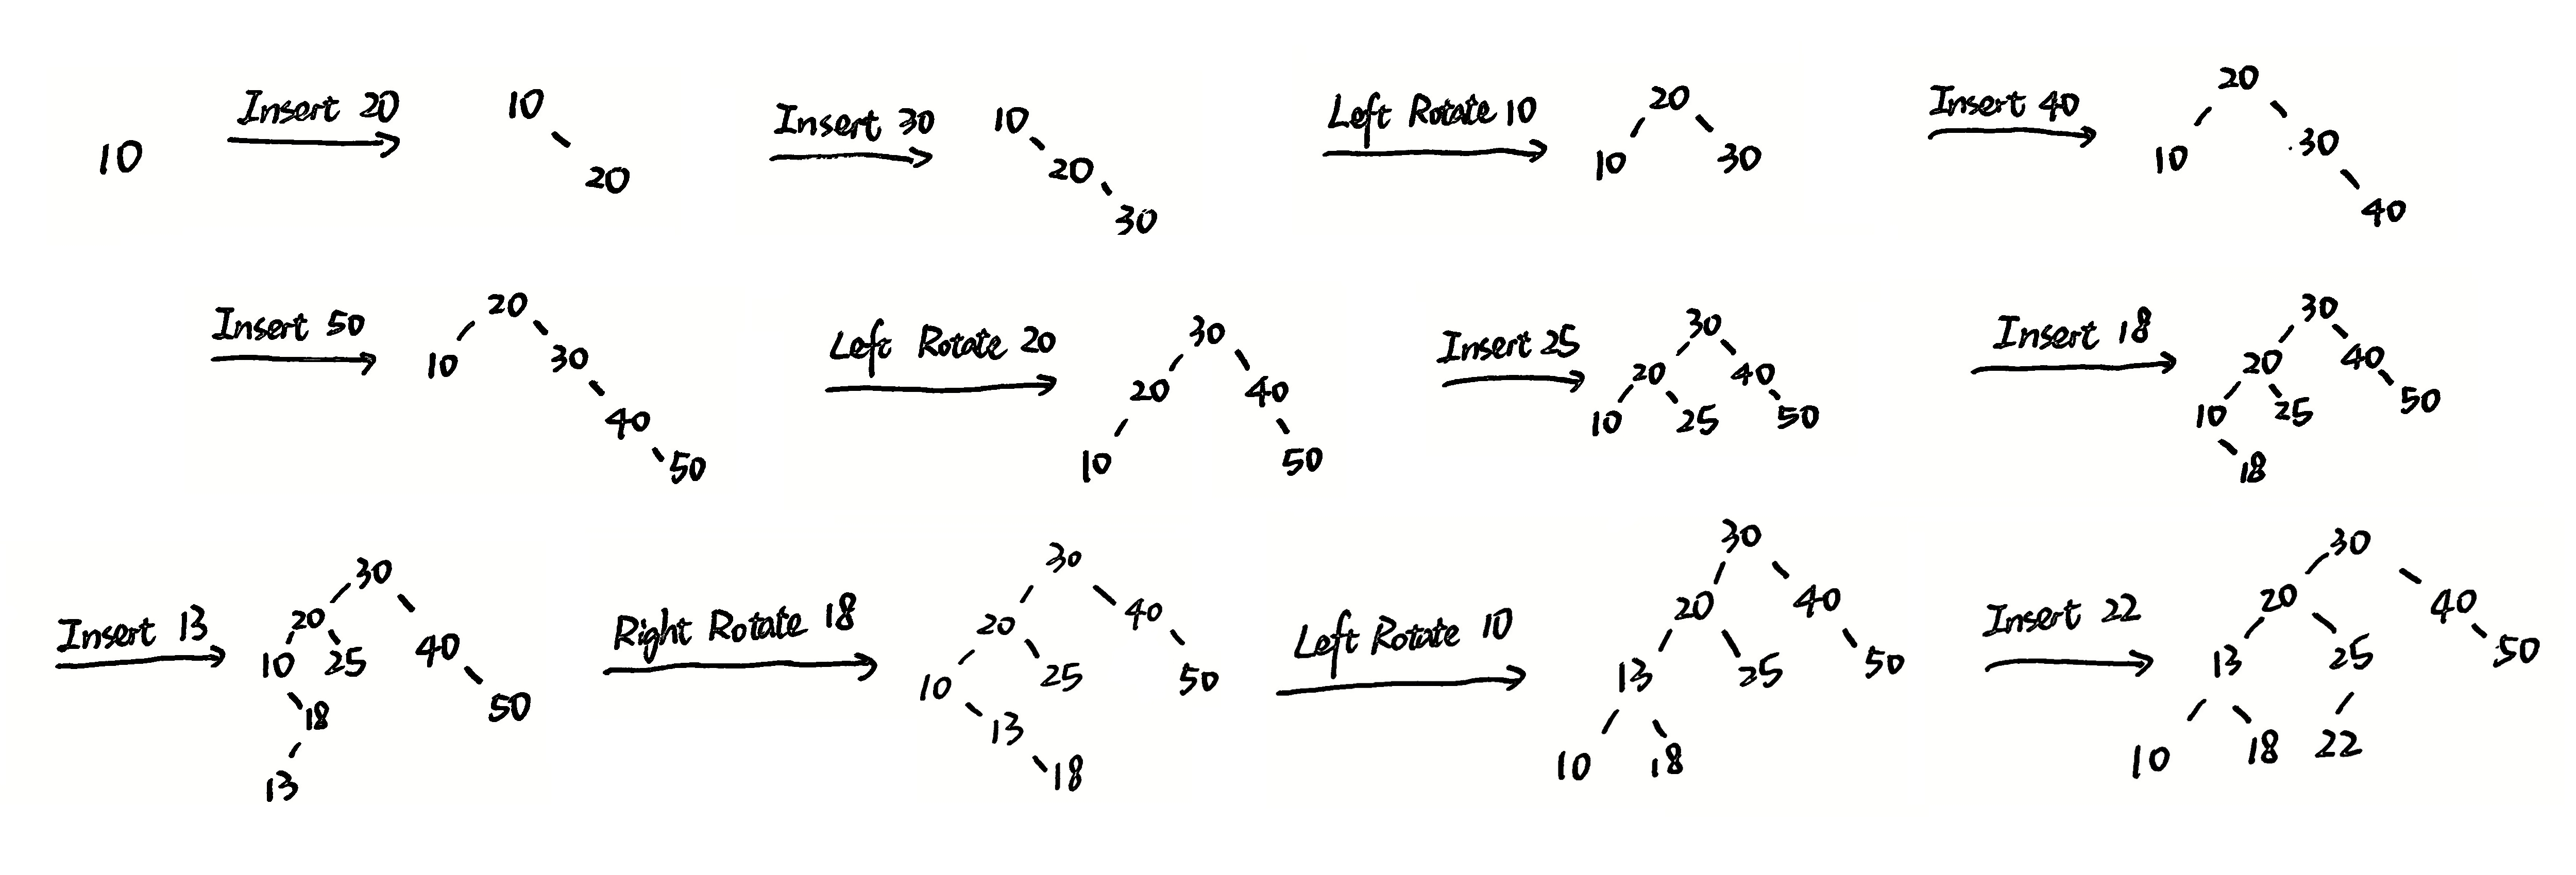 10 Insert 20 10 20 Insert 30 10 20 30 Left Rotate 10 20 10 30 Insert 40 20 10 30 40
Insert 50 20 10 30 40 50 Left Rotate 20 30 20 40 10 50 Insert 25 30 20 40 10 25 50 Insert 18 30 20 40 10 25 50 18
Insert 13 30 20 40 10 25 50 18 13 Right Rotate 18 30 20 40 10 25 50 13 18 Left Rotate 10 30 20 40 13 25 50 10 18 Insert 22 30 20 40 13 25 50 10 18 22